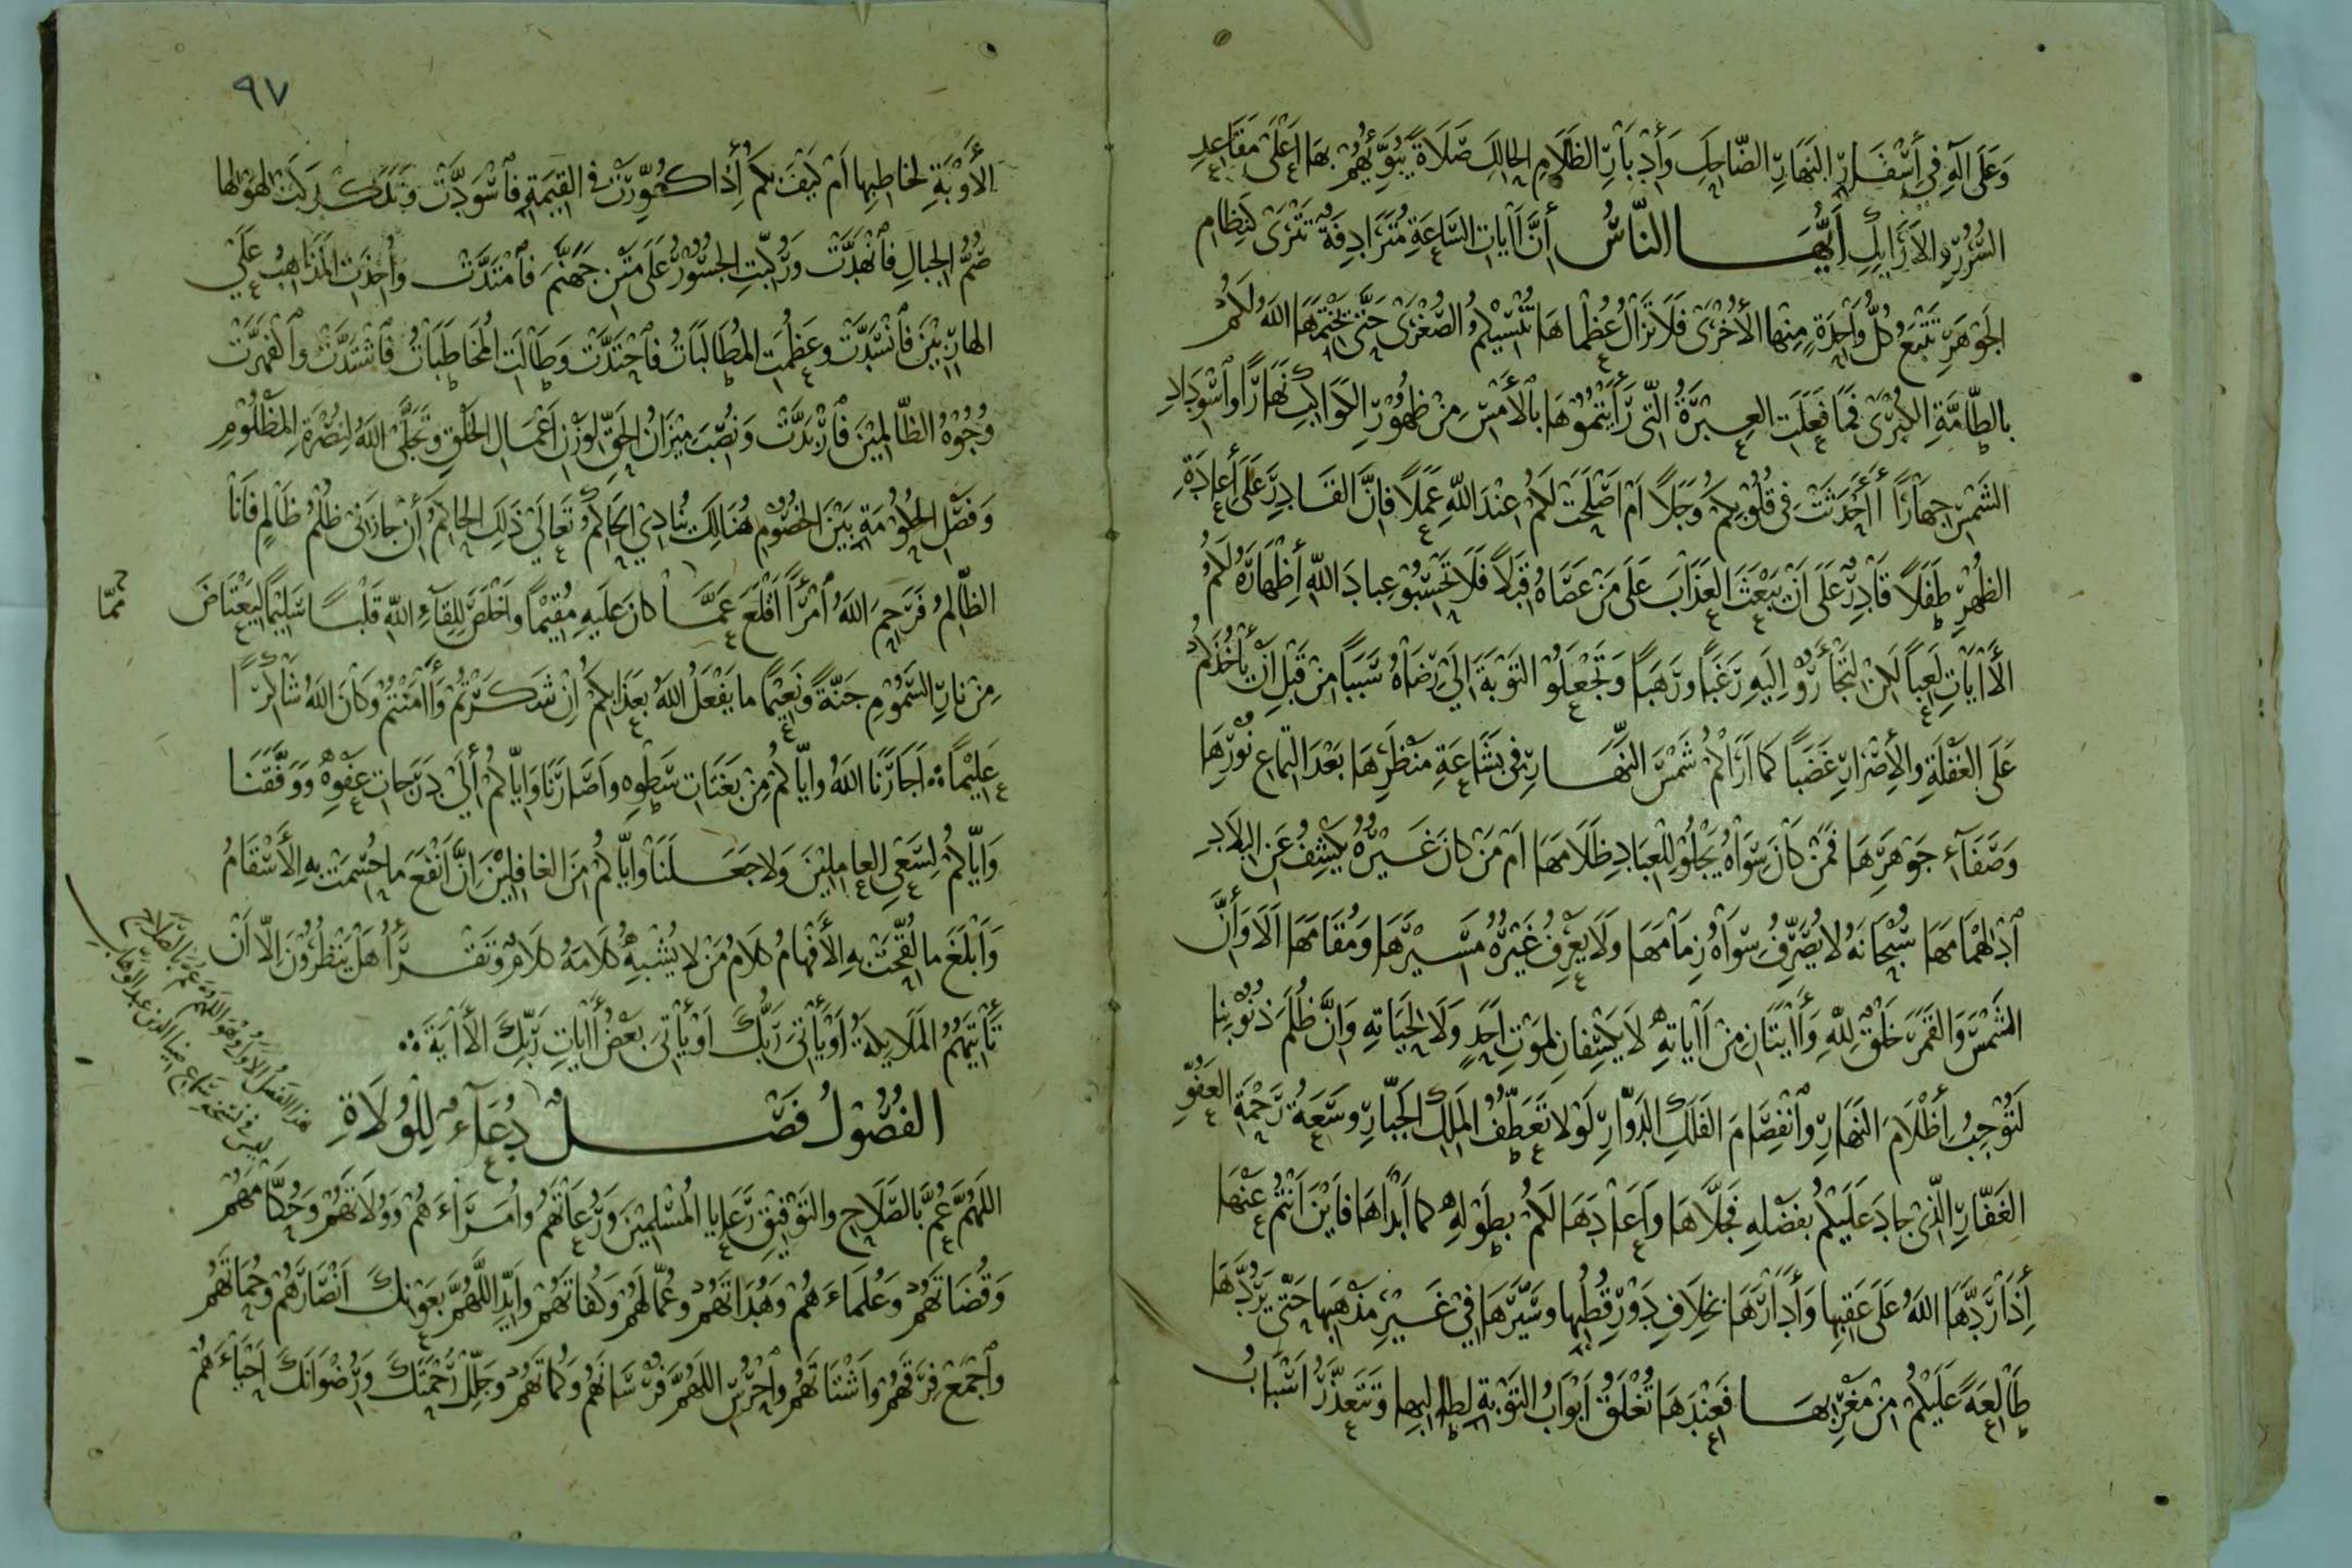 وَعَلَى آلِهِ فِي أَسْفَارِ النَّهَارِ الضَّاحِكِ وَأَدْبَارِ الظَّلَامِ الْحَالِكِ صَلَاةً يُبَوِّئُهُمْ بِهَا أَعْلَى مَقَاعِدِ
السُّرُرِ وَالْأَرَايِكِ أَيُّهَا النَّاسُ إِنَّ آيَاتِ السَّاعَةِ مُتَرَادِفَةٌ تَتْرَى كَنِظَامِ
الْجَوْهَرِ تَتْبَعُ كُلُّ وَاحِدَةٍ مِنْهَا الْأُخْرَى فَلَا تَزَالُ عُظْمَاهَا تُنْسِيْكُمُ الصُّغْرَى حَتَّى يَخْتِمَهَا اللهُ لَكُمْ
بِالطَّامَّةِ الْكُبْرَى فَمَا فَعَلَتِ الْعِبْرَةُ الَّتِي رَأَيْتُمُوْهَا بِالْأَمْسِ مِنْ ظُهُوْرِ الْكَوَاكِبِ نَهَارًا وَاسْوِدَادِ
الشَّمْسِ جِهَارًا أَأَحْدَثَتْ فِي قُلُوْبِكُمْ وَجَلًا أَمْ أَصْلَحَتْ لَكُمْ عِنْدَ اللهِ عَمَلًا فَإِنَّ الْقَادِرَ عَلَى إِعَادَةِ
الظُّهْرِ طَفَلًا قَادِرٌ عَلَى أَنْ يَبْعَثَ الْعَذَابَ عَلَى مَنْ عَصَاهُ قِبَلًا فَلَا تَحْسَبُوْ عِبَادَ اللهِ إِظْهَارَهُ لَكُمُ
الْآيَاتِ لَعِبًا لَكِنْ لِتَجْأَرُوْ إِلَيْهِ رَغَبًا وَرَهَبًا وَتَجْعَلُوْ التَّوْبَةَ إِلَى رِضَاهُ سَبَبًا مِنْ قَبْلِ أَنْ يَأْخُذَكُمْ
عَلَى الْغَفْلَةِ وَالْإِصْرَارِ غَضَبًا كَمَا أَرَاكُمْ شَمْسَ النَّهَارِ فِي بَشَاعَةِ مَنْظَرِهَا بَعْدَ الْتِمَاعِ نُوْرِهَا
وَصَفَاءِ جَوْهَرِهَا فَمَنْ كَانَ سِوَاهُ يَجْلُوْ لِلْعِبَادِ ظَلَامَهَا أَمْ مَنْ كَانَ غَيْرُهُ يَكْشِفُ عَنِ الْبِلَادِ
ادْلِهْمَامَهَا سُبْحَانَهُ لَا يُصَرِّفُ سِوَاهُ زِمَامَهَا وَلَا يَعْرِفُ غَيْرُهُ مَسِيْرَهَا وَمُقَامَهَا أَلَا وَإِنَّ
الشَّمْسَ وَالْقَمَرَ خَلْقٌ لِلَّهِ وَآيَتَانِ مِنْ آيَاتِهِ لَا يَكْسِفَانِ لِمَوْتِ أَحَدٍ وَلَا لِحَيَاتِهِ وَإِنَّ ظُلَمَ ذُنُوْبِنَا
لَتُوْجِبُ إِظْلَامَ النَّهَارِ وَانْفِصَامَ الْفَلَكِ الدَّوَّارِ لَوْلَا تَعَطُّفُ الْمَلِكِ الْجَبَّارِ وَسَعَةُ رَحْمَةِ الْعَفُوِّ
الْغَفَّارِ الَّذِي جَادَ عَلَيْكُمْ بِفَضْلِهِ فَجَلَّاهَا وَأَعَادَهَا لَكُمْ بِطَوْلِهِ كَمَا أَبْدَاهَا فَأَيْنَ أَنْتُمْ عَنْهَا
إِذَا رَدَّهَا اللهُ عَلَى عَقِبِهَا وَأَدَارَهَا بِخِلَافِ دَوْرِ قُطْبِهَا وَسَيَّرَهَا فِي غَيْرِ مَذْهَبِهَا حَتَّى يَرُدَّهَا
طَالِعَةً عَلَيْكُمْ مِنْ مَغْرِبِهَا فَعِنْدَهَا تُغْلَقُ أَبْوَابُ التَّوْبَةِ لِطَالِبِهَا وَتَتَعَذَّرُ أَسْبَابُ
٩٧
الْأَوْبَةِ لِخَاطِبِهَا أَمْ كَيْفَ بِكُمْ إِذَا كُوِّرَتْ فِي الْقِيَامَةِ فَاسْوَدَّتْ وَتَدَكْدَكَتْ لِهَوْلِهَا
صُمُّ الْجِبَالِ فَانْهَدَّتْ وَرُكِّبَتِ الْجُسُوْرُ عَلَى مَتْنِ جَهَنَّمَ فَامْتَدَّتْ وَأُخِذَتِ الْمَذَاهِبُ عَلَى
الْهَارِبِيْنَ فَانْسَدَّتْ وَعَظُمَتِ الْمُطَالَبَاتُ فَاحْتَدَّتْ وَطَالَتِ الْمُخَاطَبَاتُ فَاشْتَدَّتْ وَاكْفَهَرَّتْ
وُجُوْهُ الظَّالِمِيْنَ فَارْبَدَّتْ وَنُصِبَ مِيْزَانُ الْحَقِّ لِوَزْنِ أَعْمَالِ الْخَلْقِ وَتَجَلَّى اللهُ لِنُصْرَةِ الْمَظْلُوْمِ
وَفَصْلِ الْحُكُوْمَةِ بَيْنَ الْخُصُوْمِ هُنَالِكَ يُنَادِي الْحَاكِمُ تَعَالَى ذَلِكَ الْحَاكِمُ إِنْ جَازَنِي ظُلْمُ ظَالِمٍ فَأَنَا
الظَّالِمُ فَرَحِمَ اللهُ امْرَأً أَقْلَعَ عَمَّا كَانَ عَلَيْهِ مُقِيْمًا وَأَخْلَصَ لِلِقَاءِ اللهِ قَلْبًا سَلِيْمًا لِيَعْتَاضَ
مِنْ نَارِ السَّمُوْمِ جَنَّةً وَنَعِيْمًا مَا يَفْعَلُ اللهُ بِعَذَابِكُمْ إِنْ شَكَرْتُمْ وَآمَنْتُمْ وَكَانَ اللهُ شَاكِرًا
عَلِيْمًا أَجَارَنَا اللهُ وَإِيَّاكُمْ مِنْ بَغَتَاتِ سَطْوِهِ وَأَصَارَنَا وَإِيَّاكُمْ إِلَى دَرَجَاتِ عَفْوِهِ وَوَفَّقَنَا
وَإِيَّاكُمْ لِسَعْيِ الْعَامِلِيْنَ وَلَا جَعَلَنَا وَإِيَّاكُمْ مِنَ الْغَافِلِيْنَ إِنَّ أَنْفَعَ مَا حُسِمَتْ بِهِ الْأَسْقَامُ
وَأَبْلَغَ مَا لُقِّحَتْ بِهِ الْأَفْهَامُ كَلَامُ مَنْ لَا يُشْبِهُ كَلَامَهُ كَلَامٌ وَتَقْرَأُ هَلْ يَنْظُرُوْنَ إِلَّا أَنْ
تَأْتِيَهُمُ الْمَلَايِكَةُ أَوْ يَأْتِيَ رَبُّكَ أَوْ يَأْتِيَ بَعْضُ آيَاتِ رَبِّكَ الْآيَةَ
الْفُصُوْلُ فَصْلٌ دُعَاءٌ لِلْوُلَاةِ
اللَّهُمَّ عُمَّ بِالصَّلَاحِ وَالتَّوْفِيْقِ رَعَايَا الْمُسْلِمِيْنَ وَرُعَاتَهُمْ وَأُمَرَاءَهُمْ وَوُلَاتَهُمْ وَحُكَّامَهُمْ
وَقُضَاتَهُمْ وَعُلَمَاءَهُمْ وَهُدَاتَهُمْ وَعُمَّالَهُمْ وَكُفَاتَهُمْ وَأَيِّدِ اللَّهُمَّ بِعَوْنِكَ أَنْصَارَهُمْ وَحُمَاتَهُمْ
وَاجْمَعْ فِرَقَهُمْ وَأَشْتَاتَهُمْ وَاحْرُسِ اللَّهُمَّ فُرْسَانَهُمْ وَكُمَاتَهُمْ وَجَلِّلْ رَحْمَتَكَ وَرِضْوَانَكَ أَحْيَاءَهُمْ
هذا الفصل الأول وهو اللهم عم بالصلاح
ليس في نسخة سماع ضياء الدين عبد الوهاب